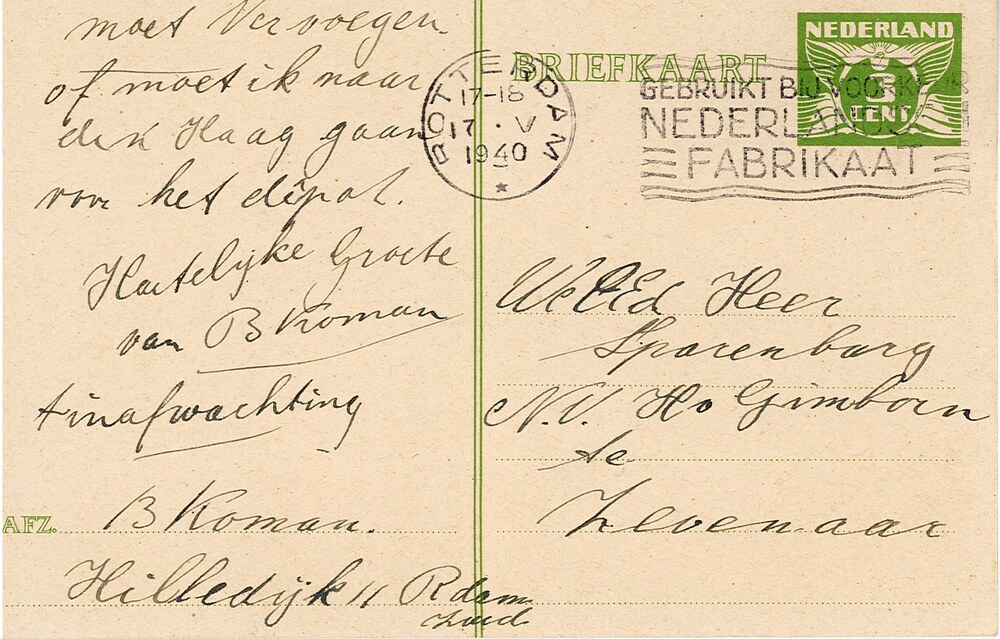 moet Vervoegen
of moet ik naar
den Haag gaan
voor het depot.
Hartelyke Groete
van B Koman
t inafwachting
AFZ. B Koman.
Hilledÿk 11 Rdam
zuid
BRIEFKAART
NEDERLAND
5
CENT
ROTTERDAM
17-18
17 · V
1940
GEBRUIKT BIJ VOORKEUR
NEDERLANDSCH
FABRIKAAT
WelEd Heer
Sparenburg
N.V. Ho Gimborn
te
Zevenaar